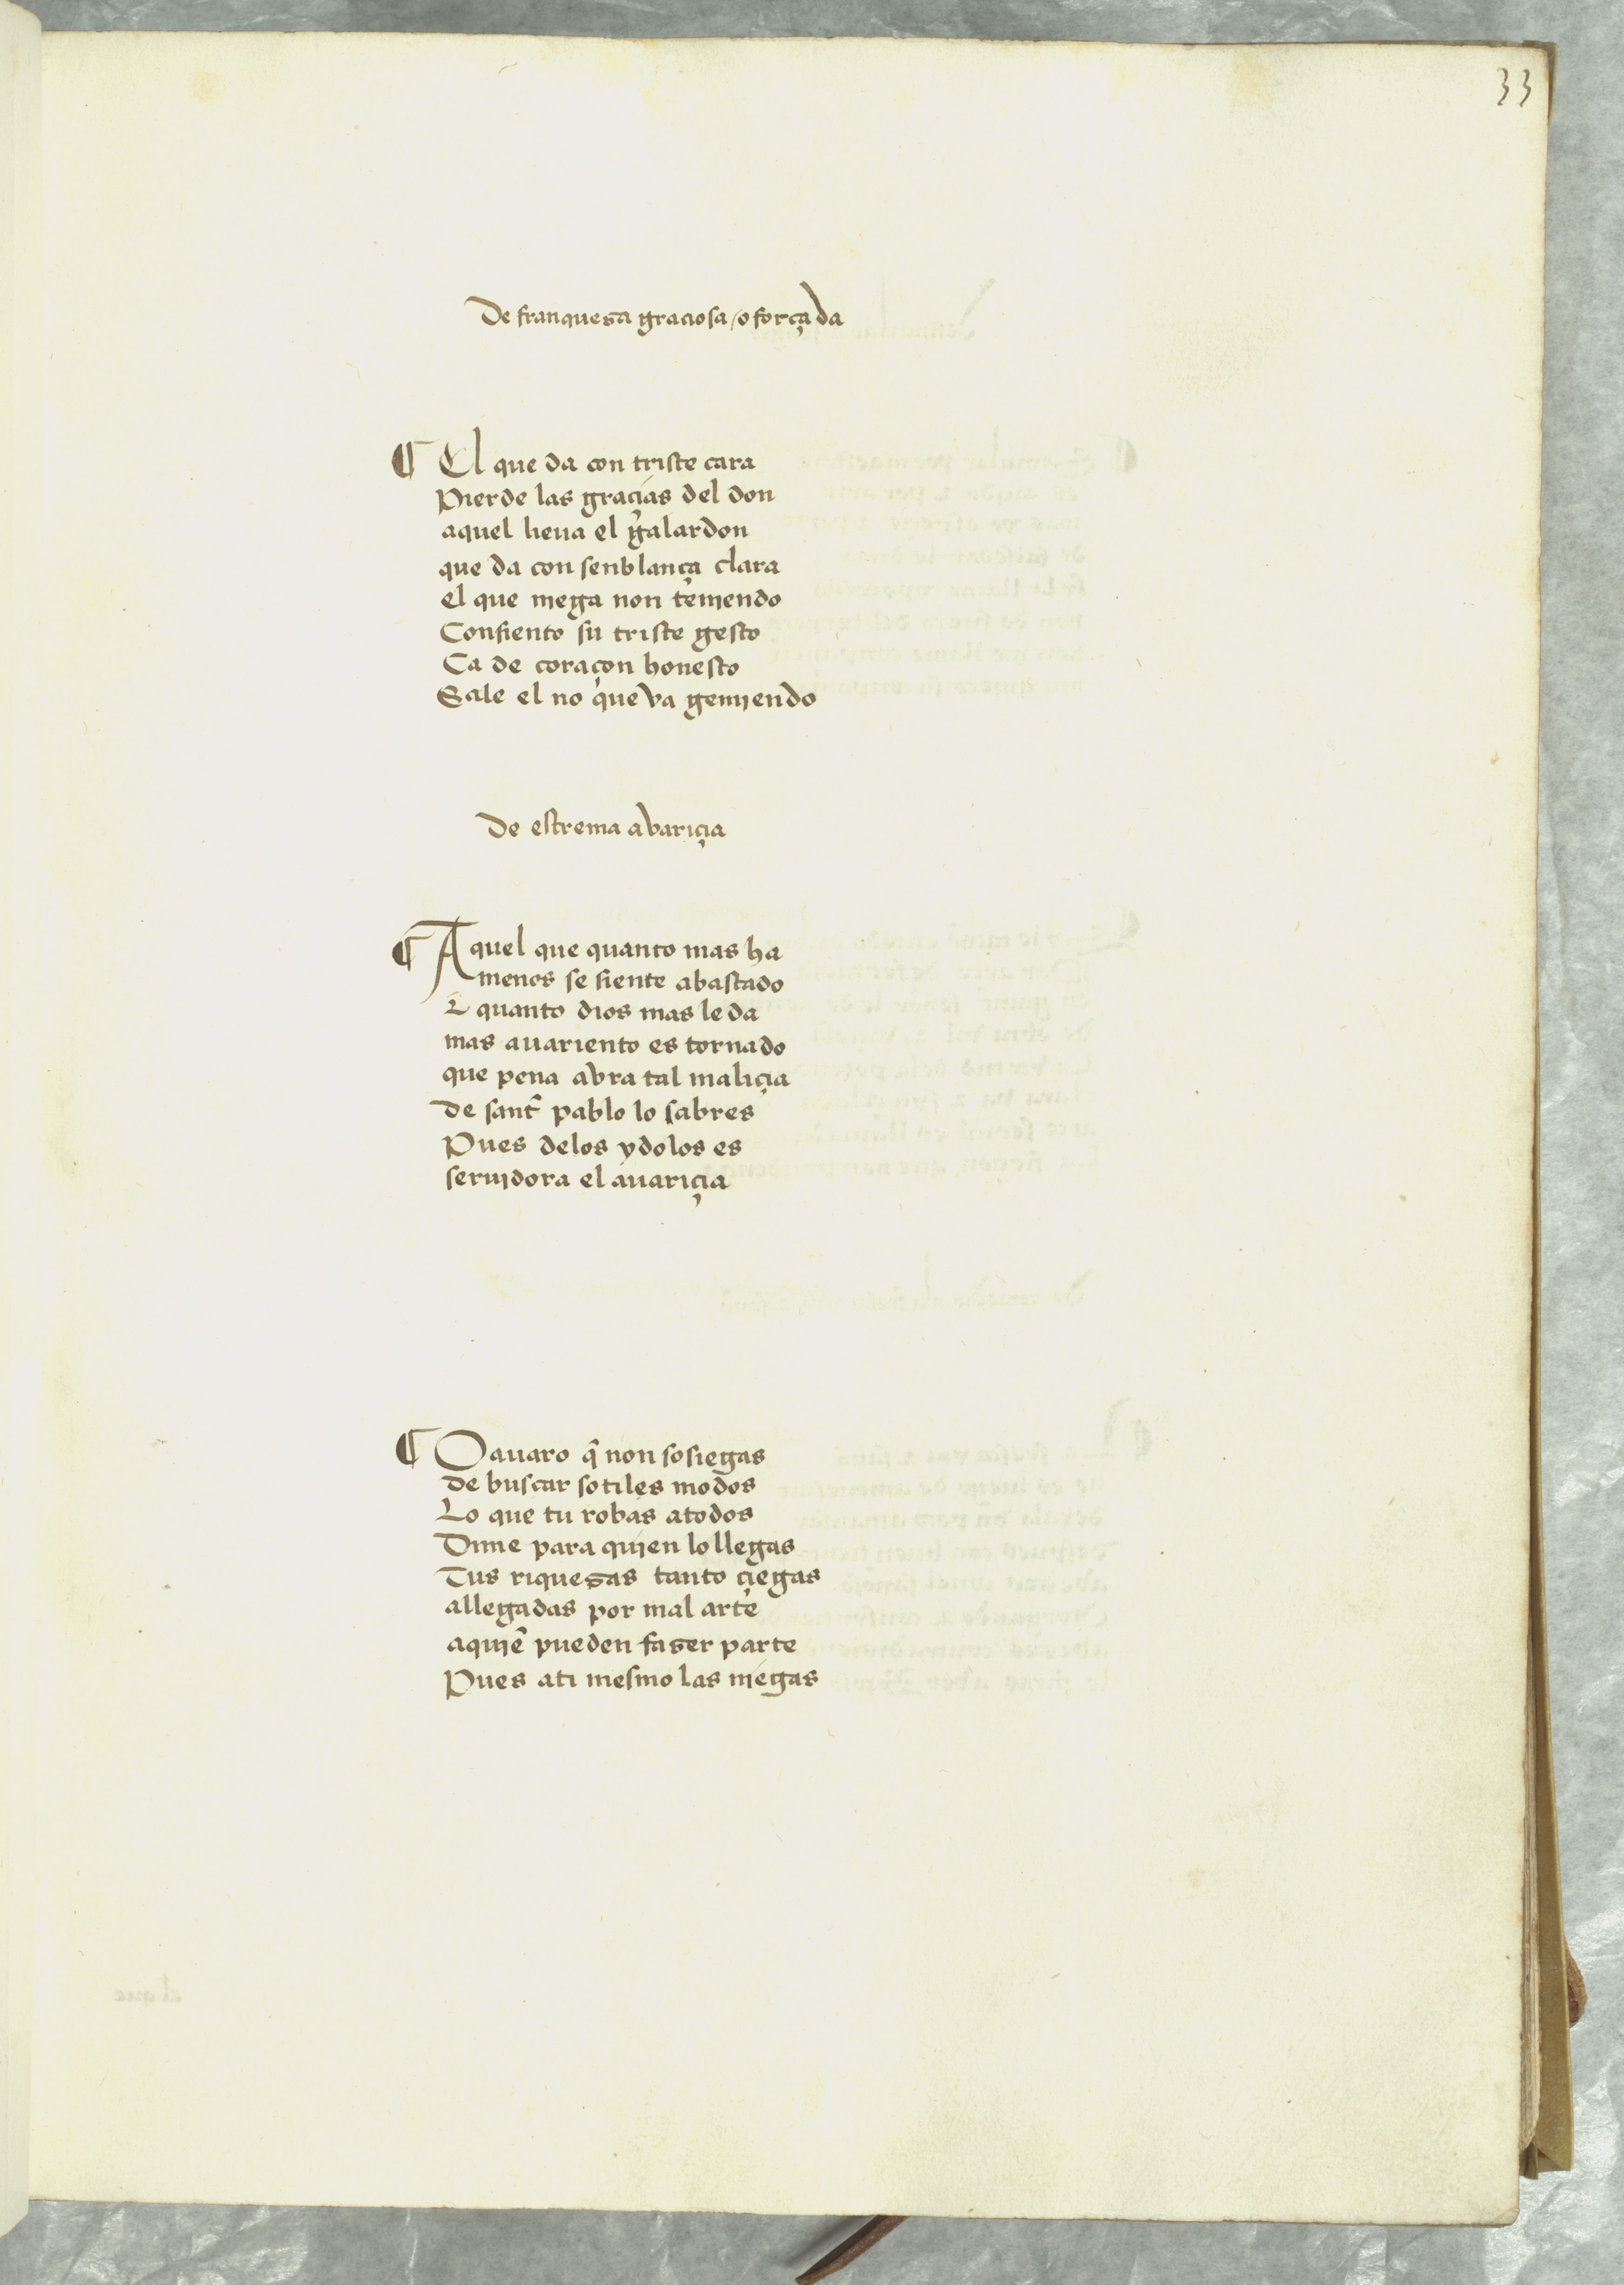 33
De franquesa graciosa / o forçada
¶ El que da con triste cara
Pierde las graçias del don
aquel lieua el galardon
que da con senblança clara
el que niega non temiendo
Consiento su triste gesto
Ca de coraçon honesto
Sale el no que va gemiendo
De estrema avariçia
¶ Aquel que quanto mas ha
menos se siente abastado
E quanto dios mas le da
mas auariento es tornado
que pena avra tal maliçia
de sant̃ pablo lo sabres
Pues delos ydolos es
seruidora el auariçia
¶ O auaro q̃ non sosiegas
de buscar sotiles modos
Lo que tu robas atodos
Dime para quien lo llegas
Tus riquesas tanto çiegas
allegadas por mal arte
aquiẽ pueden faser parte
Pues ati mesmo las niegas